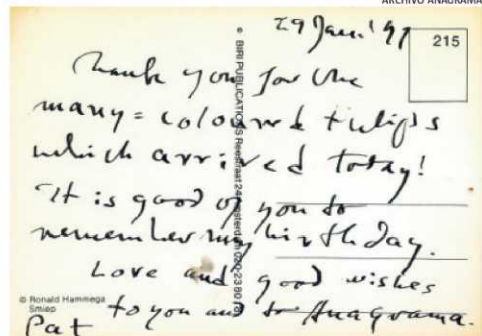 ARCHIVO ANAGRAMA
29 Jan' 91
215
Thank you for the
many=coloured tulips
which arrived today!
It is good of you to
remember my birthday.
Love and good wishes
to you and to Anagrama.
Pat
© BIRI PUBLICATIONS Reestraat 24
© Ronald Hammega
Smiep